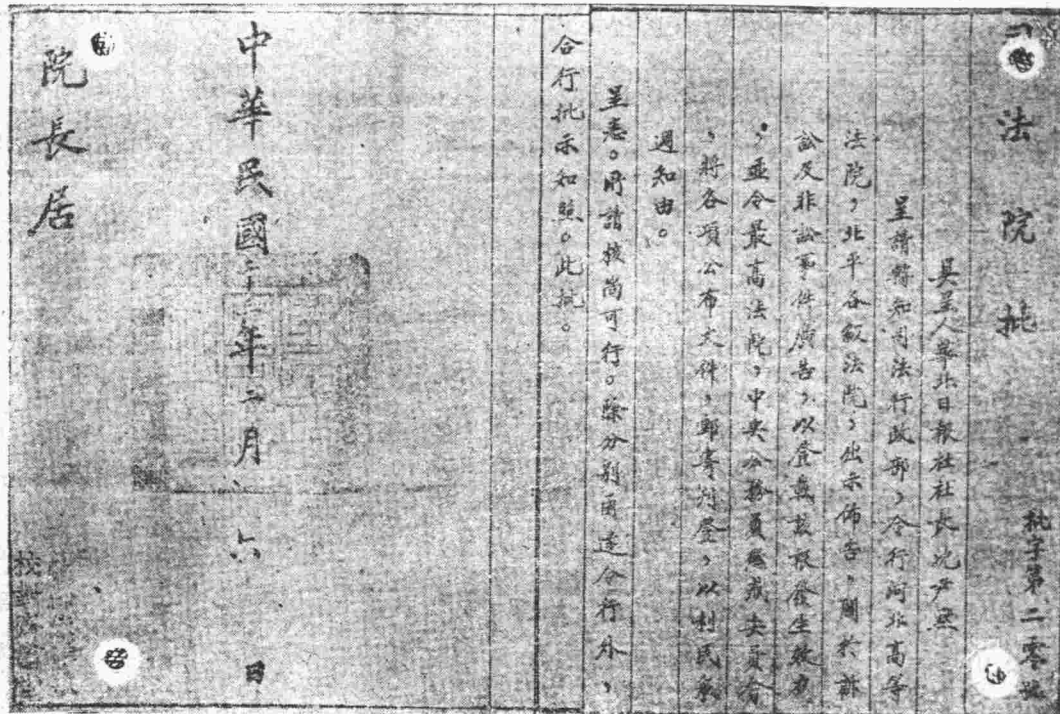 司法院批
批字第二零號
具呈人華北日報社社長沈尹默
呈請轉知司法行政部，令行河北高等
法院，北平各級法院，出示佈告，關於訴
訟及非訟事件廣告，以登載該報發生效力
，並令最高法院，中央公務員懲戒委員會
，將各項公布文件，郵寄刊登，以利民眾
週知由。
呈悉。所請核尚可行。除分別函達令行外，
合行批示知照。此批。
中華民國二十二年二月六日
院長居
校對